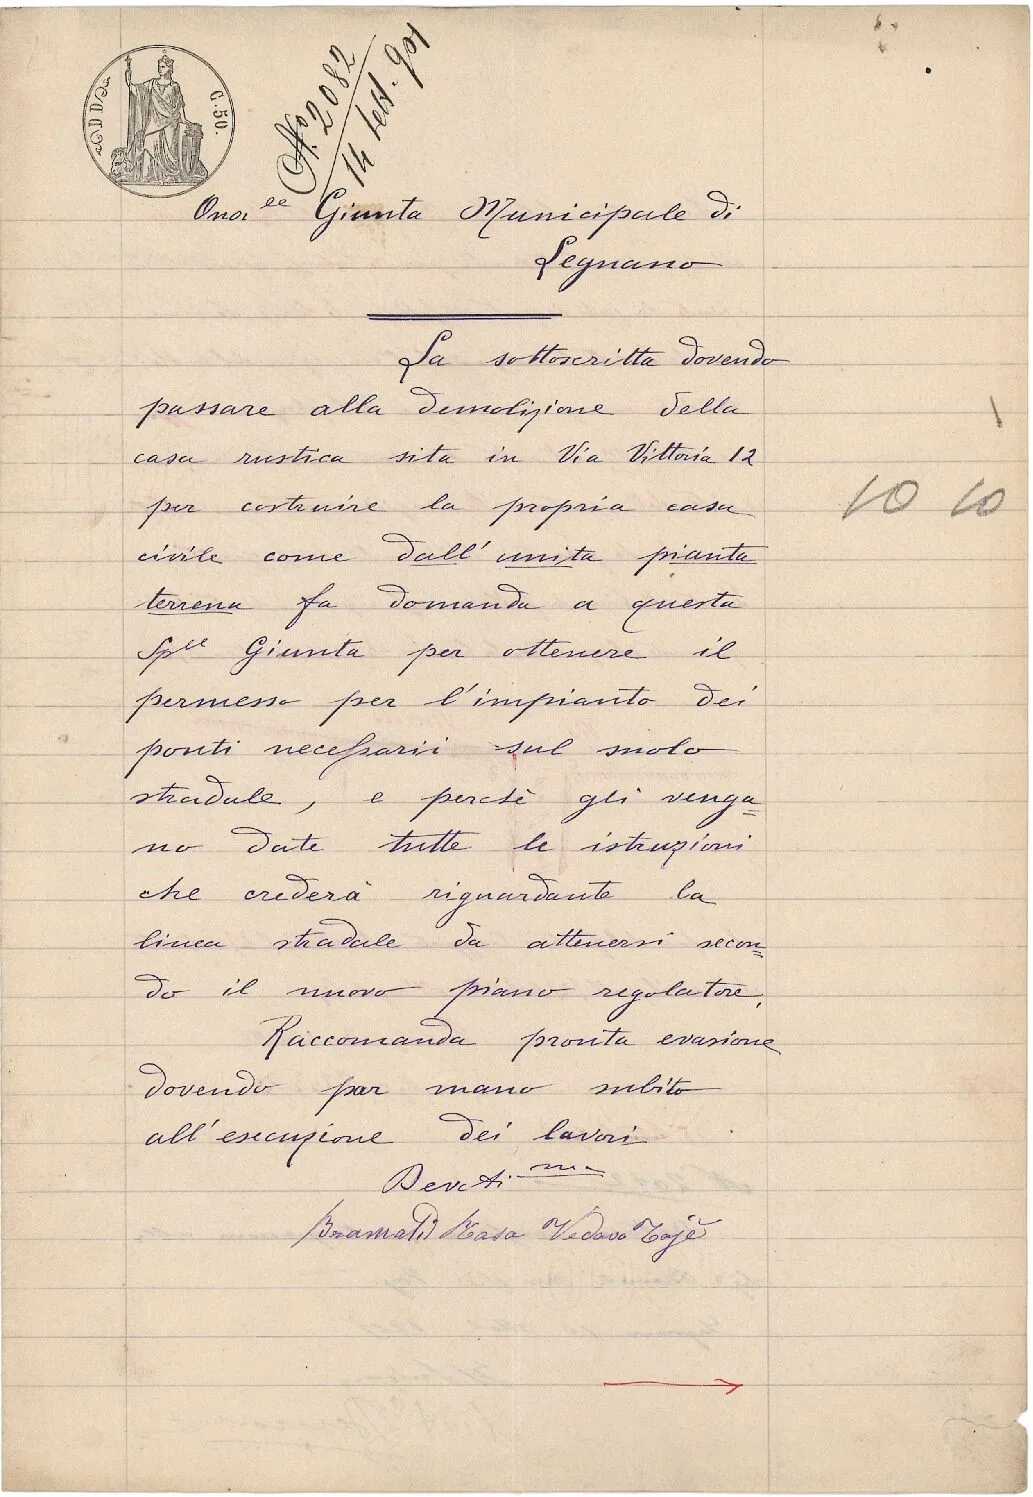 C. 50.
N.° 2082
14 Sett. 901
Onor.le Giunta Municipale di
Legnano
La sottoscritta dovendo
passare alla demolizione della
casa rustica sita in Via Vittoria 12
per costruire la propria casa
civile come dall'unita pianta
terrena fa domanda a questa
Sp.le Giunta per ottenere il
permesso per l'impianto dei
ponti necessarii sul suolo
stradale, e perchè gli venga=
no date tutte le istruzioni
che crederà riguardante la
linea stradale da attenersi secon=
do il nuovo piano regolatore.
Raccomanda pronta evasione
dovendo por mano subito
all'esecuzione dei lavori
Devoti.ma
Bramati Rasa Vedova Tajè
10 10